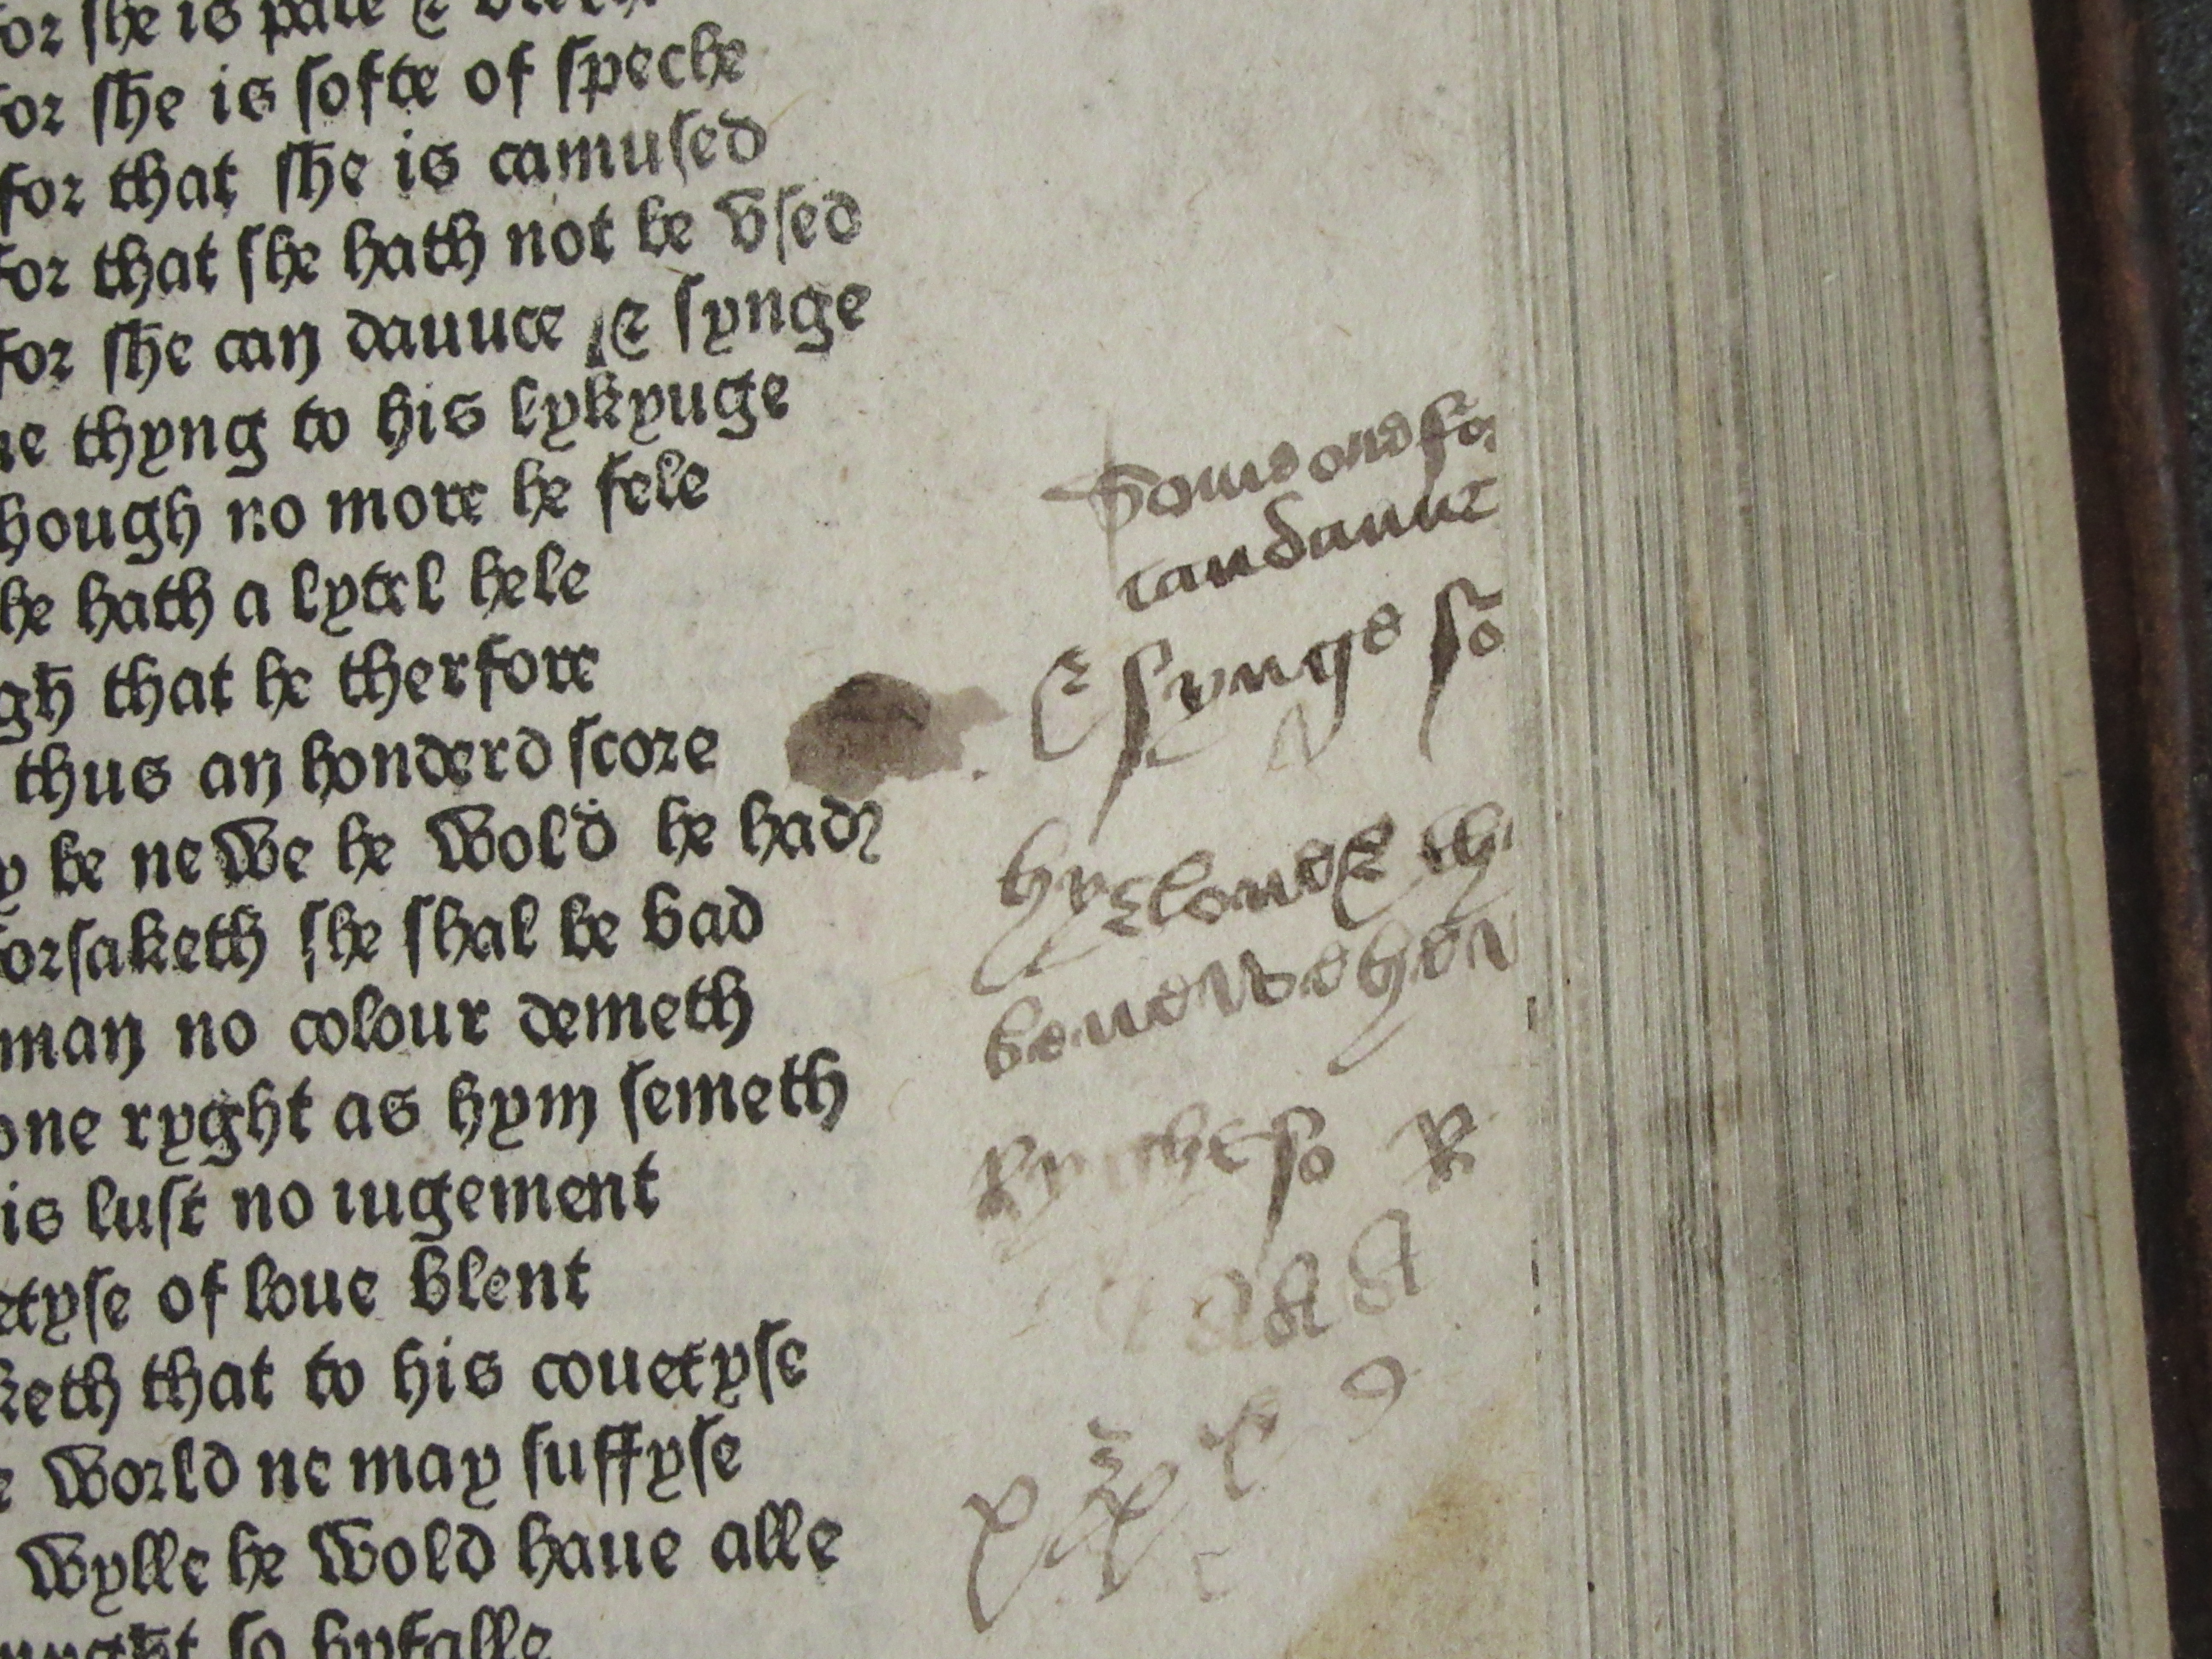 or she is pale &
for she is softe of speche
for that she is camused
for that she hath not be vsed
for she can dauuce & synge
ne thyng to his lykyuge
hough no more he fele
he hath a lytel hele
gh that he therfore
thus an honderd score
y be newe he wold he had
orsaketh she shal be bad
man no colour demeth
one ryght as hym semeth
is lust no iugement
etyse of loue blent
keth that to his couetyse
e world ne may suffyse
wylle he wold haue alle
so byfalle
for
can daunc
& synge so
so